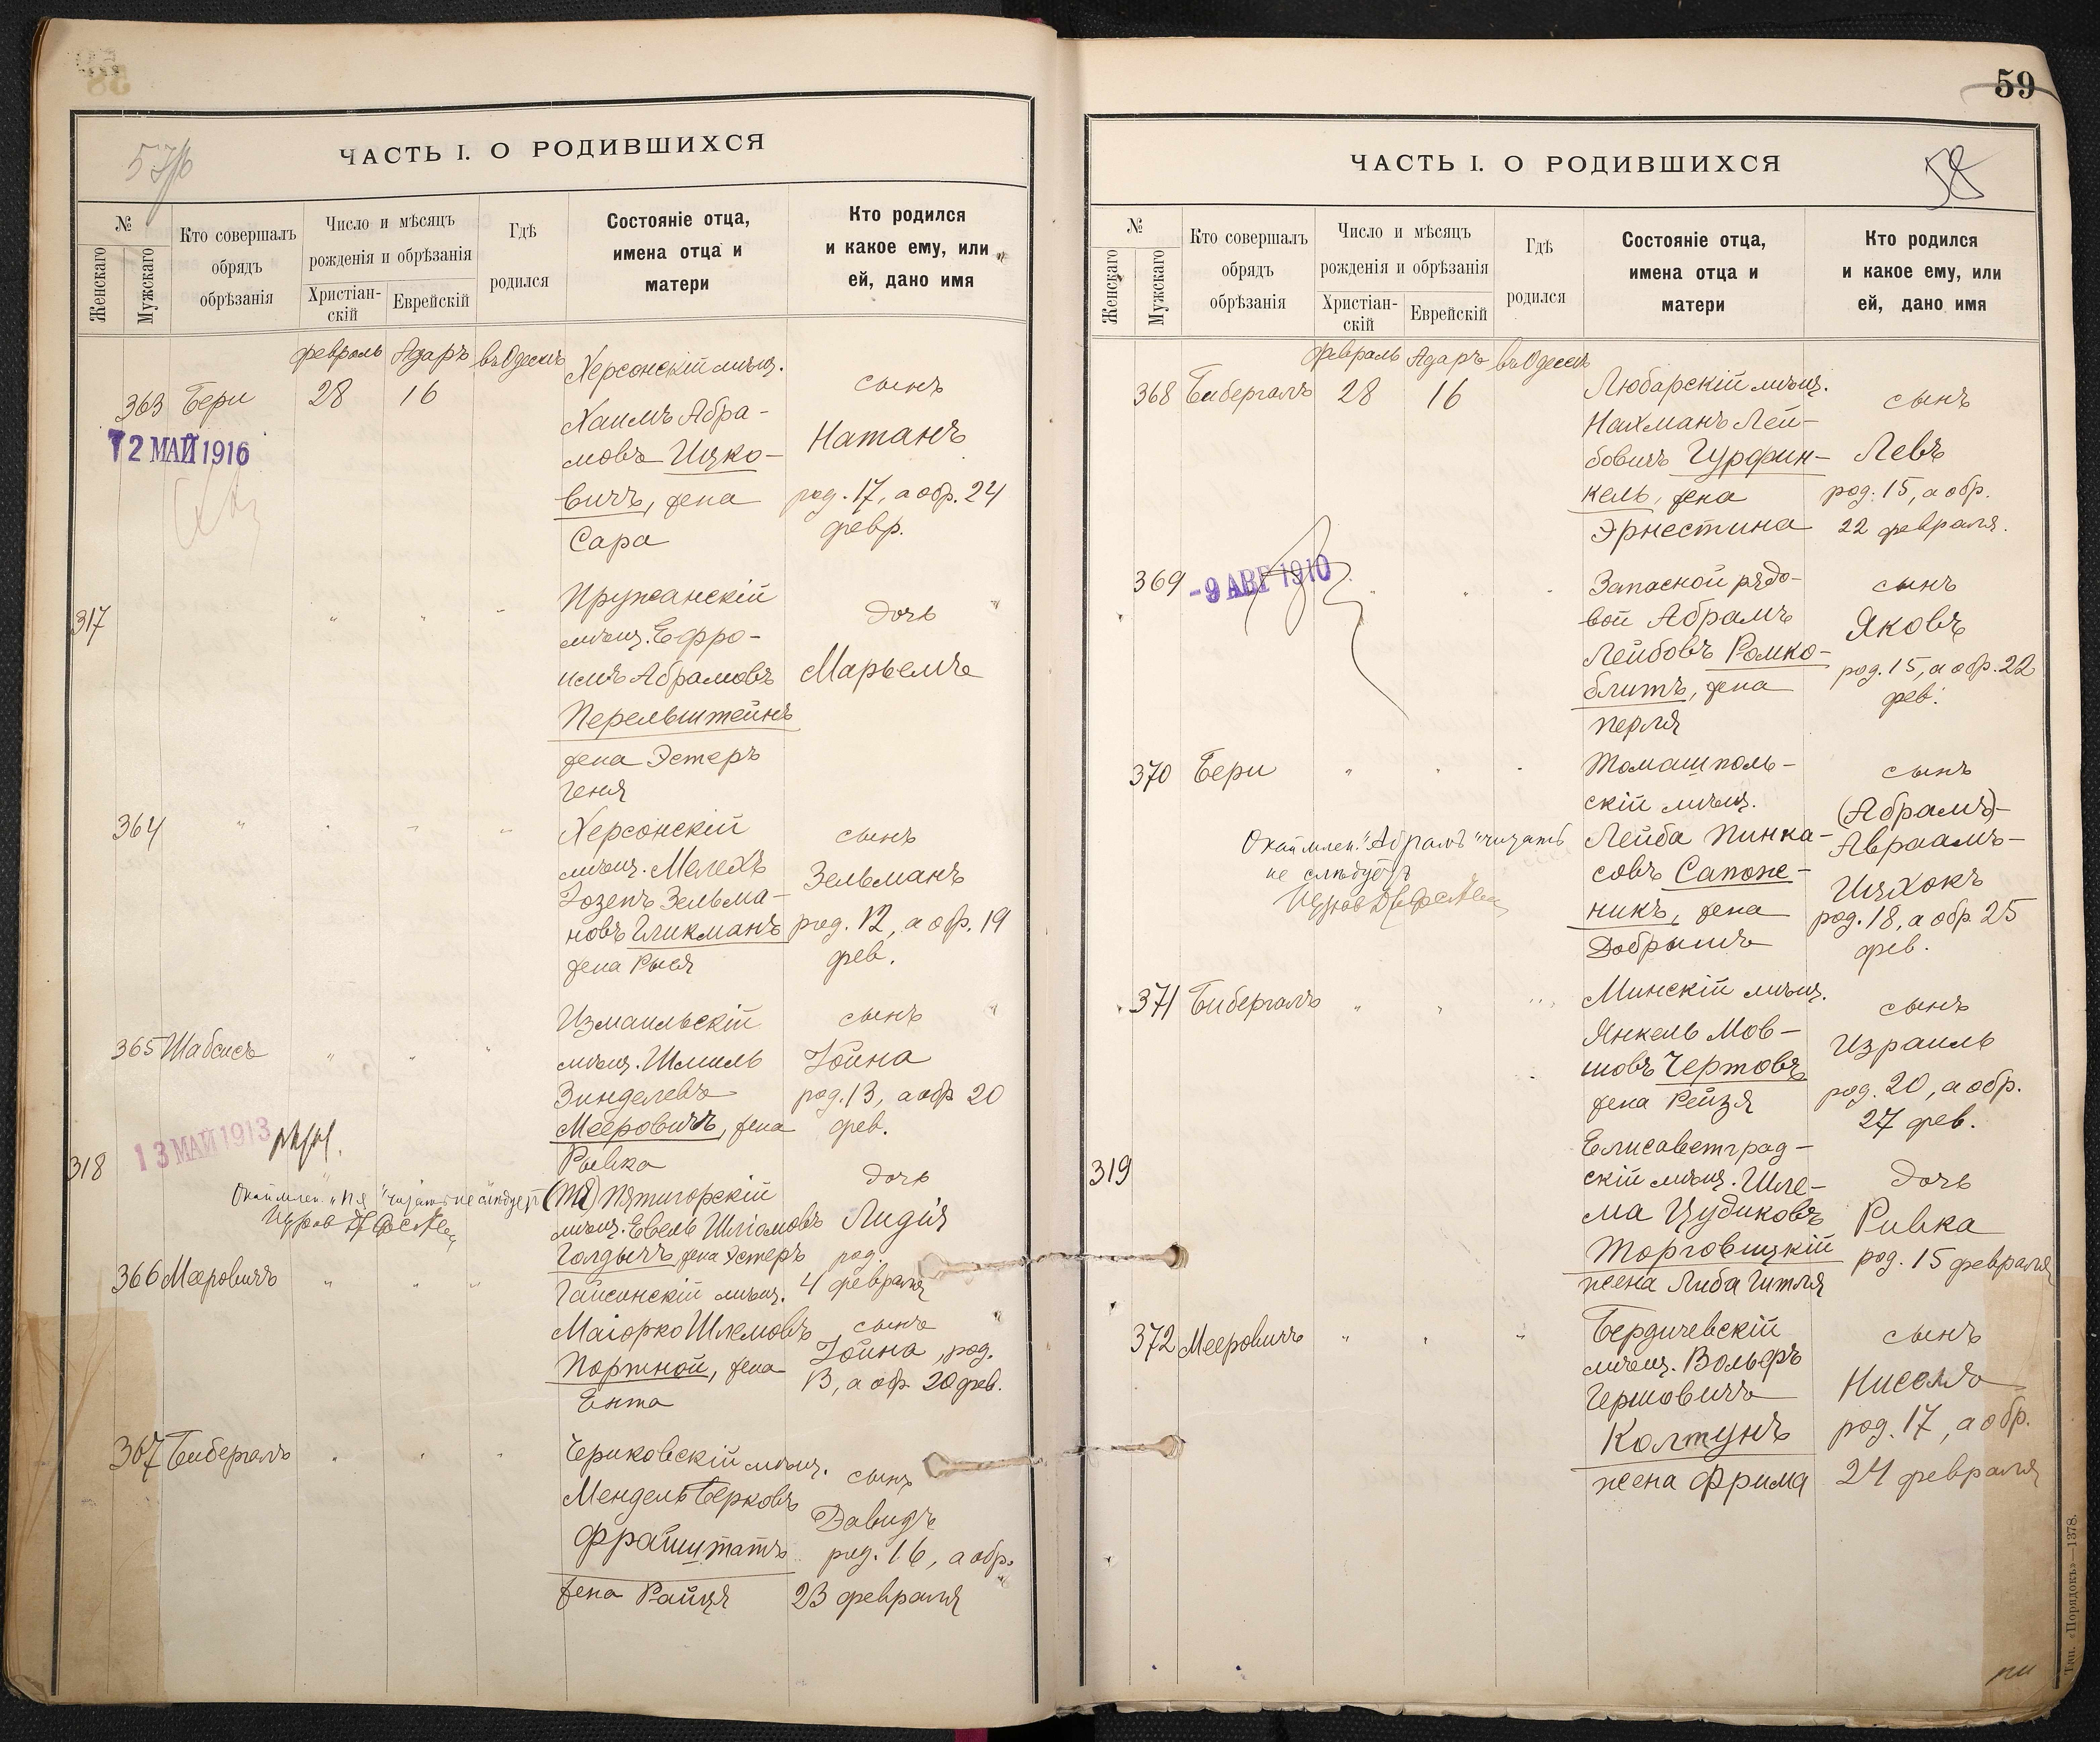 57/б
ЧАСТЬ I. О РОДИВШИХСЯ
№
Женскаго
Мужскаго
Кто совершалъ
обрядъ
обрѣзанія
Число и мѣсяцъ
рожденія и обрѣзанія
Христіан-
скій
Еврейскій
Гдѣ
родился
Состояніе отца,
имена отца и
матери
Кто родился
и какое ему, или
ей, дано имя
февраль Адаръ въ Одессѣ
363 Бери 28 16
12 МАЙ 1916
Херсонскій мѣщ.
Хаимъ Абра-
мовъ Ицко-
вичъ, жена
Сара
сынъ
Натанъ
род. 17, а обр. 24
февр.
317 " " "
Пружанскій
мѣщ. Ефро-
имъ Абрамовъ
Перельштейнъ
жена Эстеръ
Геня
дочь
Марьемъ
364 " " " "
Херсонскій
мѣщ. Мелехъ
Іозепъ Зельма-
новъ Гликманъ
жена Рыся
сынъ
Зельманъ
род. 12, а обр. 19
фев.
365 Шабсисъ " " "
Измаильскій
мѣщ. Шмиль
Зинделевъ
Мееровичъ, жена
Рывка
сынъ
Іойна
род. 13, а обр 20
фев.
13 МАЙ 1913
318
Окаймлен. "пя" читать не слѣдуетъ
(пя) Пятигорскій
мѣщ. Евель Шліомовъ
Голдычъ, жена Эстеръ
дочь
Лидія
род.
4 февраля
366 Мееровичъ " " "
Гайсинскій мѣщ.
Маіорко Шлемовъ
Портной, жена
Ента
сынъ
Іойна, род.
13, а обр 20 фев.
367 Бибергалъ " " "
Чериковскій мѣщ.
Мендель Берковъ
Фрайштатъ
жена Райця
сынъ
Давидъ
род. 16, а обр.
23 февраля
59
58
ЧАСТЬ I. О РОДИВШИХСЯ
№
Женскаго
Мужскаго
Кто совершалъ
обрядъ
обрѣзанія
Число и мѣсяцъ
рожденія и обрѣзанія
Христіан-
скій
Еврейскій
Гдѣ
родился
Состояніе отца,
имена отца и
матери
Кто родился
и какое ему, или
ей, дано имя
февраль Адаръ въ Одессѣ
368 Бибергалъ 28 16
Любарскій мѣщ.
Нахманъ Лей-
бовичъ Гурфин-
кель, жена
Эрнестина
сынъ
Левъ
род. 15, а обр.
22 февраля.
369 " " "
-9 АВГ 1910
Запасной рядо-
вой Абрамъ
Лейбовъ Ромко-
блитъ, жена
Перля
сынъ
Яковъ
род. 15, а обр. 22
фев.
370 Бери " " "
Томашполь-
скій мѣщ.
Лейба Пинка-
совъ Сапож-
никъ, жена
Добрышъ
сынъ
(Абрамъ)-
Авраамъ-
Ицхокъ
род. 18, а обр 25
фев.
Окаймлен. "Абрамъ" читать
не слѣдуетъ
371 Бибергалъ " " "
Минскій мѣщ.
Янкель Мов-
шовъ Чертовъ
жена Рейзя
сынъ
Израиль
род. 20, а обр.
27 фев.
319
Елисаветград-
скій мѣщ. Шле-
ма Цудиковъ
Торговицкій
жена Либа Гитля
дочь
Ривка
род. 15 февраля
372 Мееровичъ " " "
Бердичевскій
мѣщ. Вольфъ
Гершовичъ
Колтунъ
жена Фрима
сынъ
Ниселъ
род. 17, а обр.
24 февраля
Тип. «Порядокъ»—1378.